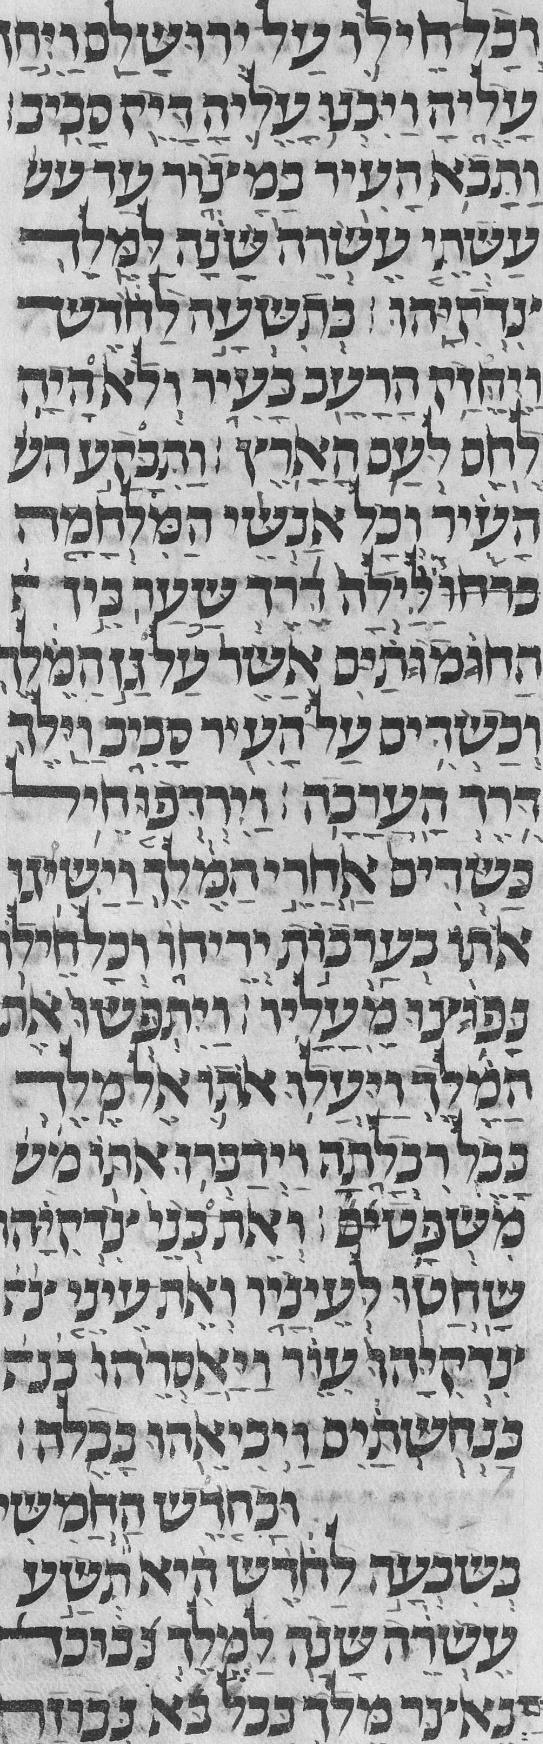 וכל חילו על ירושלם ויחן
עליה ויבנו עליה דיק סביב׃
ותבא העיר במצור עד עש
עשתי עשרה שנה למלך
צדקיהו׃ בתשעה לחדש
ויחזק הרעב בעיר ולא היה
לחם לעם הארץ׃ ותבקע הע
העיר וכל אנשי המלחמה
ברחו לילה דרך שער בין ה
החומותים אשר על גן המלך
וכשדים על העיר סביב וילך
דרך הערבה׃ וירדפו חיל
כשדים אחרי המלך וישיגו
אתו בערבות יריחו וכל חילו
נפוצו מעליו׃ ויתפשו את
המלך ויעלו אתו אל מלך
בבל רבלתה וידברו אתו מש
משפטים׃ ואת בני צדקיהו
שחטו לעיניו ואת עיני צד
צדקיהו עור ויאסרהו בנח
בנחשתים ויביאהו בבלה׃
ובחדש החמשי
בשבעה לחדש היא תשע
עשרה שנה למלך נבוכד
נאצר מלך בבל בא נבוזר